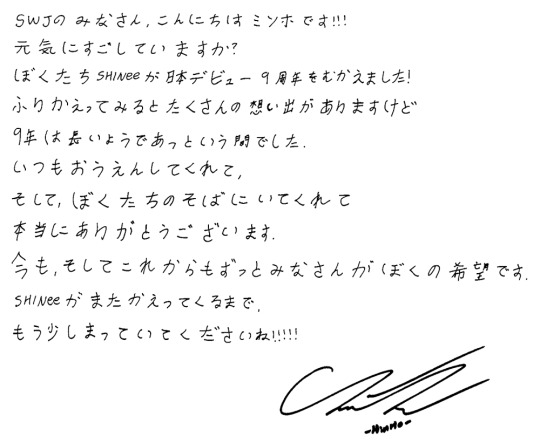 SWJのみなさん,こんにちはミンホです!!!
元気にすごしていますか?
ぼくたちSHINeeが日本デビュー9周年をむかえました!
ふりかえってみるとたくさんの想い出がありますけど
9年は長いようであっという間でした.
いつもおうえんしてくれて,
そして,ぼくたちのそばにいてくれて
本当にありがとうございます.
今も,そしてこれからもずっとみなさんがぼくの希望です.
SHINeeがまたかえってくるまで,
もう少しまっていてくださいね!!!!!
-MINHO-